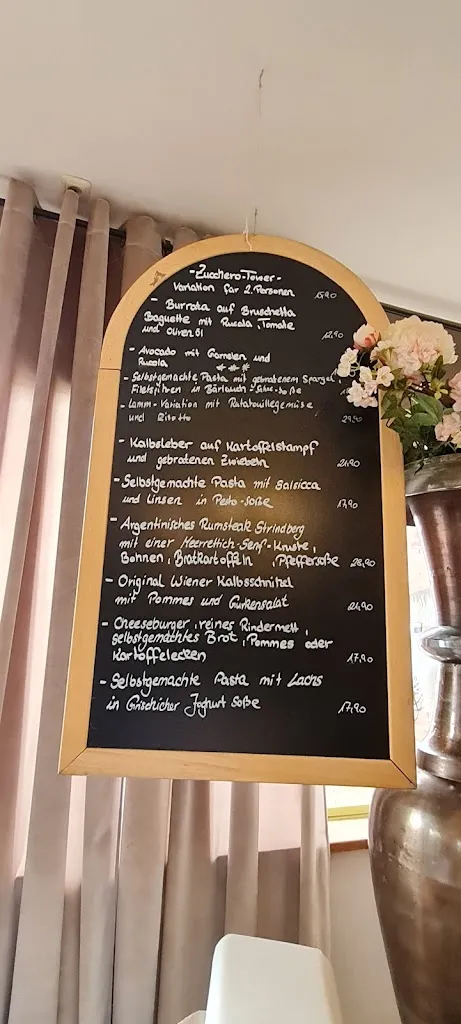 -Zucchero-Tower-
Variation für 2 Personen
- Burrata auf Bruschetta
Baguette mit Rucola, Tomate
und Olivenöl 12,90
- Avocado mit Garnelen und
Rucola
***
- Selbstgemachte Pasta mit gebratenem Spargel,
Filetspitzen in Bärlauch-Sahne-Soße
- Lamm-Variation mit Ratatouillegemüse
und Risotto 29,90
- Kalbsleber auf Kartoffelstampf
und gebratenen Zwiebeln 21,90
- Selbstgemachte Pasta mit Salsicca
und Linsen in Pesto-Soße 17,90
- Argentinisches Rumsteak Strindberg
mit einer Meerrettich-Senf-Kruste,
Bohnen, Bratkartoffeln, Pfeffersoße 28,90
- Original Wiener Kalbsschnitzel
mit Pommes und Gurkensalat 24,90
- Cheeseburger, reines Rindermett,
selbstgemachtes Brot, Pommes oder
Kartoffelecken 17,90
- Selbstgemachte Pasta mit Lachs
in Grischicher Joghurt Soße 17,90